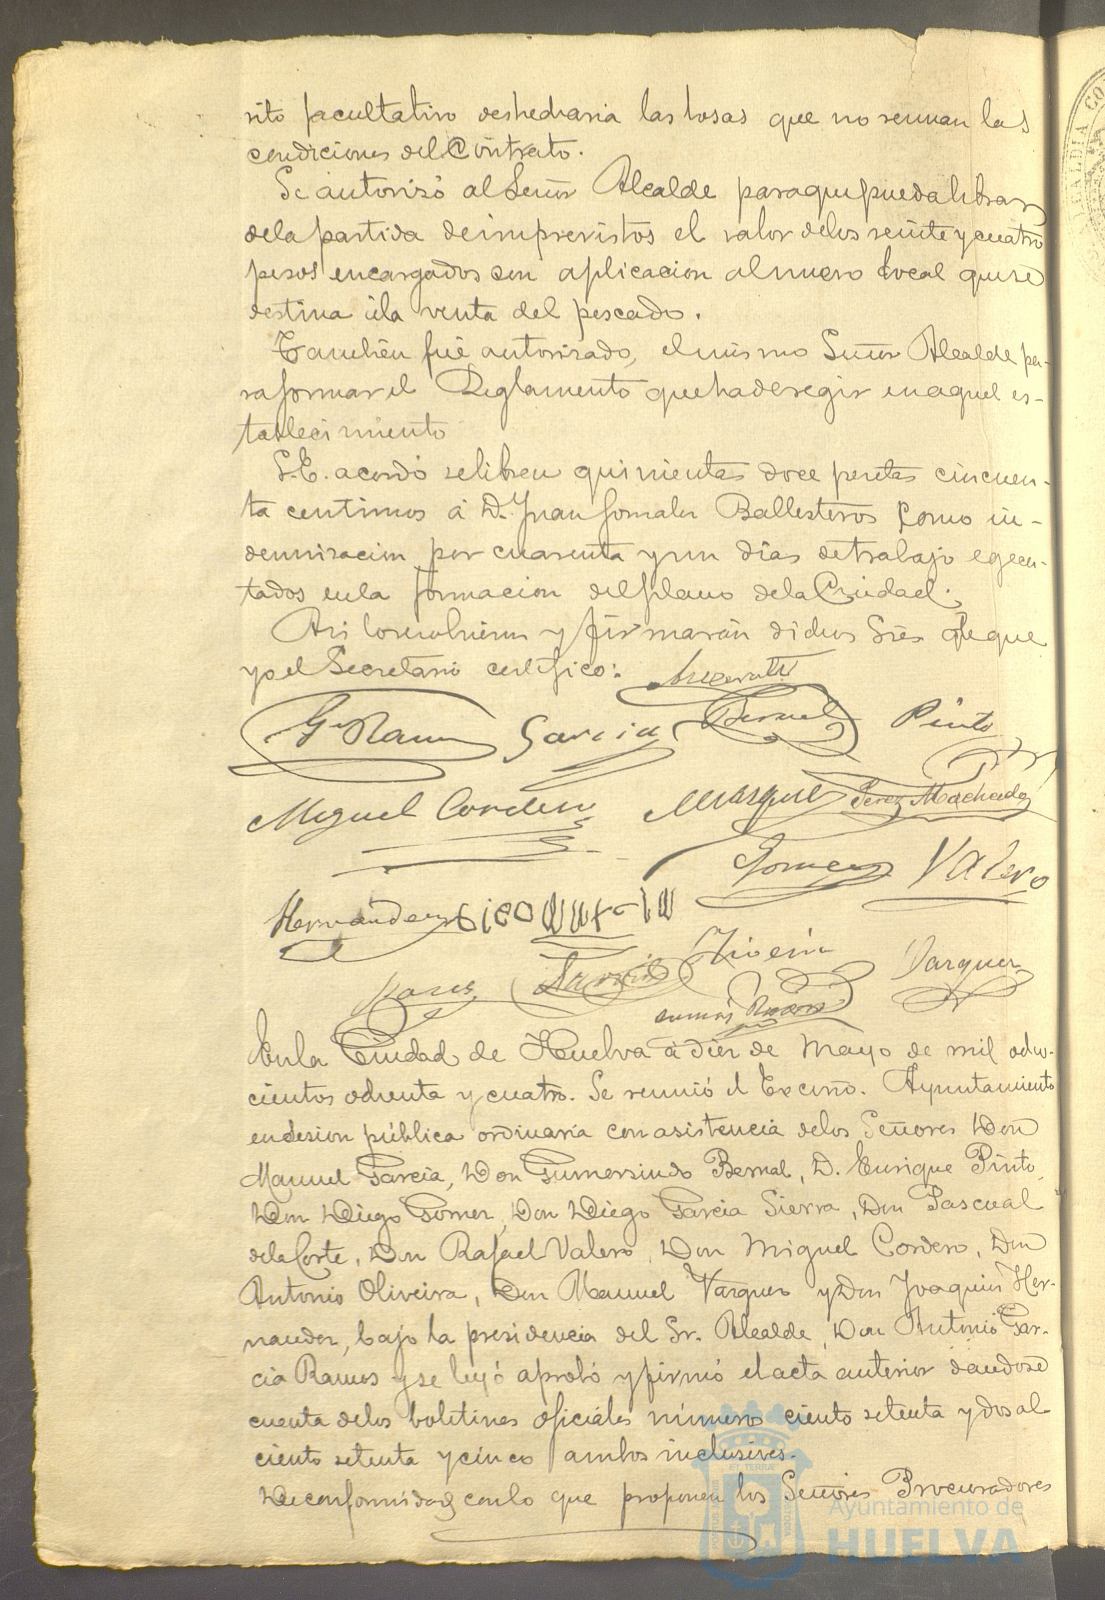 rito facultativo deshecharia las losas que no reunan las
condiciones del Contrato.
Se autorizó al Señor Alcalde para que pueda librar
de la partida de imprevistos el valor de los veinte y cuatro
pesos encargados con aplicacion al nuevo local que se
destina á la venta del pescado.
Tambien fué autorizado, el mismo Señor Alcalde pa-
ra formar el Reglamento que ha de regir en aquel es-
tablecimiento
S.E. acordó se libren quinientas doce pesetas cincuen-
ta centimos á D. Juan Gonzalez Ballesteros como in-
demnizacion por cuarenta y un dias de trabajo egecu-
tados en la formacion del plano de la Ciudad.
Asi lo resolvieron y firmarán dichos Sres de que
yo el Secretario certifico:
G. Ramos Garcia Bernal Pinto
Miguel Cordero Marquez Perez Machado
Gomez Valero
Hernandez
Oliveira Vazquez
En la Ciudad de Huelva á diez de Mayo de mil ocho-
cientos ochenta y cuatro. Se reunió el Excmo. Ayuntamiento
en sesion pública ordinaria con asistencia de los Señores Don
Manuel Garcia, Don Gumersindo Bernal, D. Enrique Pinto,
Don Diego Gomez, Don Diego Garcia Sierra, Don Pascual
de la Corte, Don Rafael Valero, Don Miguel Cordero, Don
Antonio Oliveira, Don Manuel Vazquez y Don Joaquin Her-
nandez, bajo la presidencia del Sr. Alcalde, Don Antonio Gar-
cia Ramos y se leyó aprobó y firmó el acta anterior dandose
cuenta de los boletines oficiales números ciento setenta y dos al
ciento setenta y cinco ambos inclusives.
De conformidad con lo que proponen los Señores Procuradores
Ayuntamiento de
HUELVA